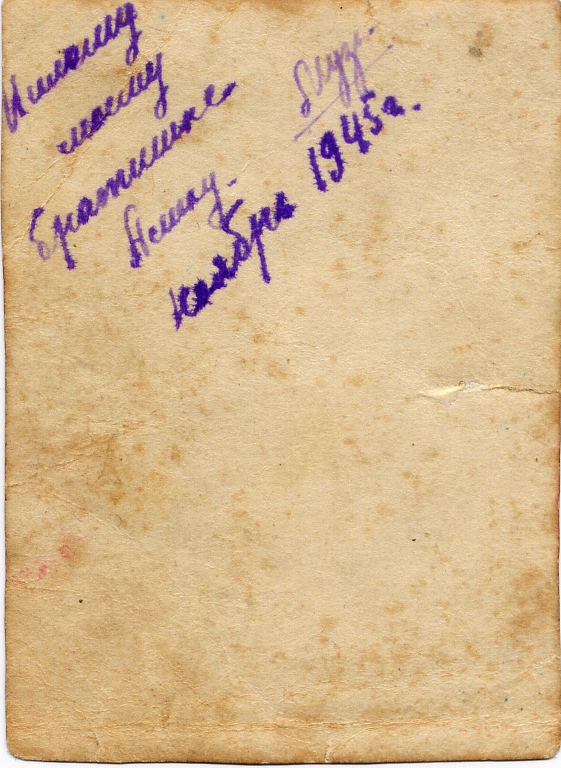 Милому
моему
братишке
ноябрь 1945г.